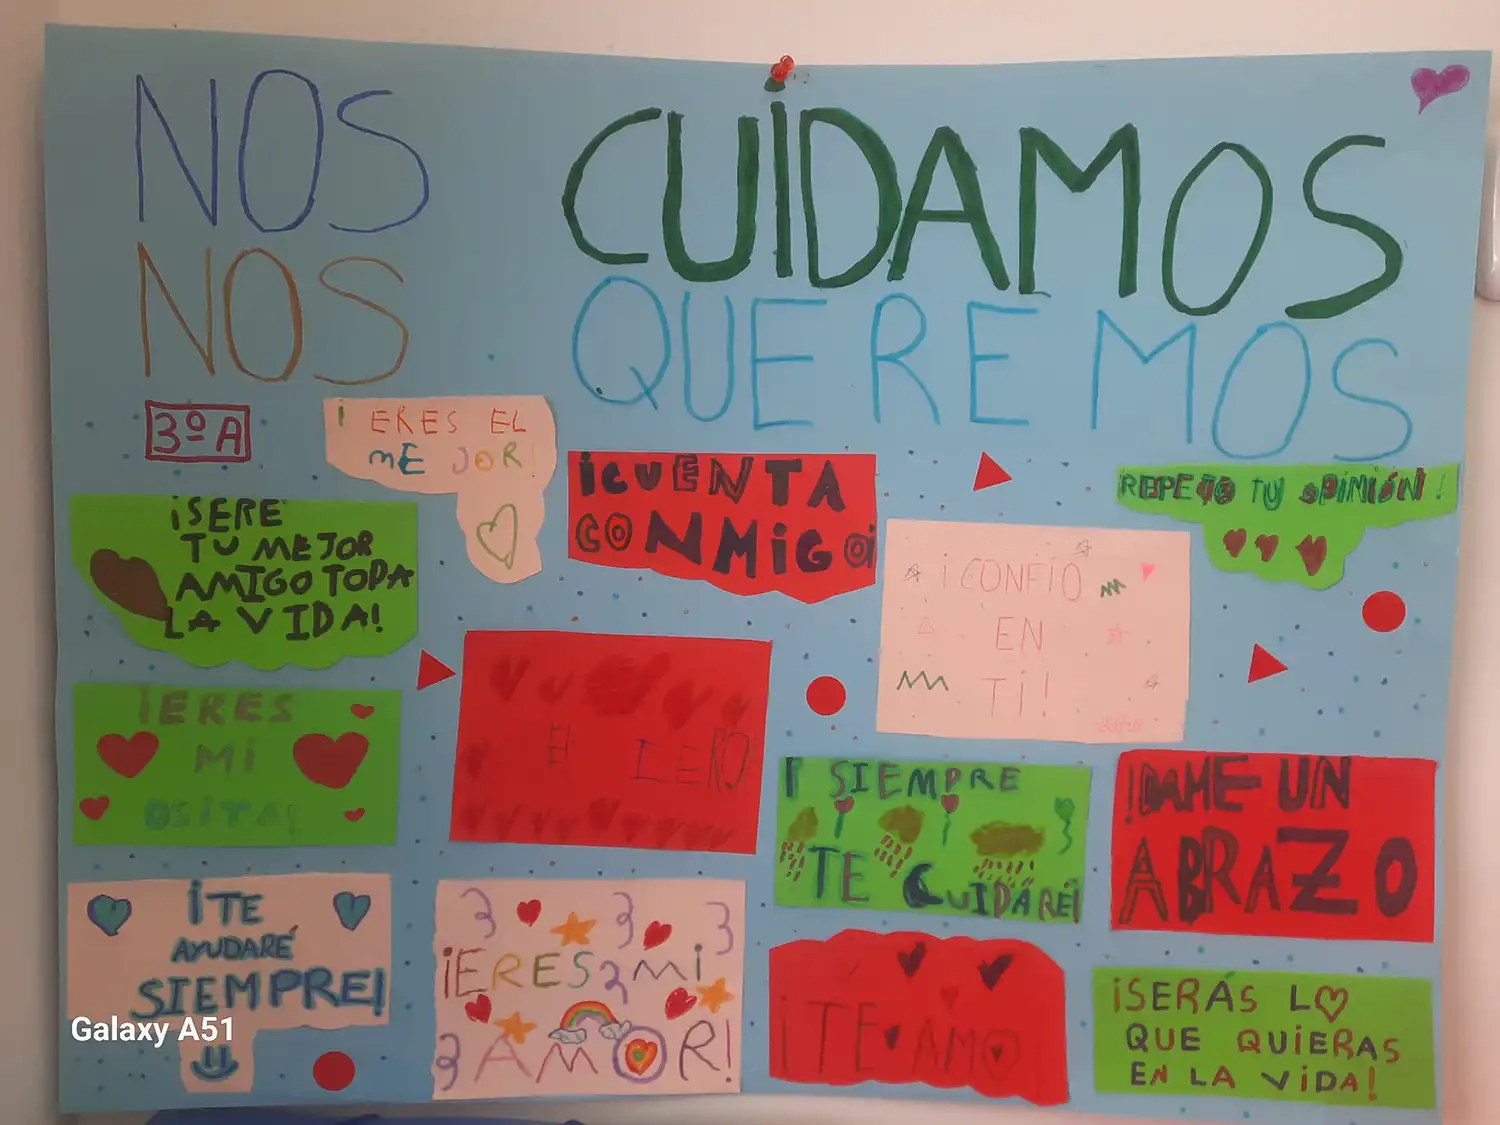 NOS CUIDAMOS
NOS QUEREMOS
3º A
¡ERES EL
MEJOR!
¡CUENTA
CONMIGO!
REPETO TU OPINIÓN!
¡SERE
TU MEJOR
AMIGO TODA
LA VIDA!
¡CONFÍO
EN
TI!
¡ERES
MI
OSITA!
¡SIEMPRE
TE CUIDARÉ!
¡DAME UN
ABRAZO
¡TE
AYUDARÉ
SIEMPRE!
¡ERES MI
AMOR!
¡TE AMO
¡SERÁS LO
QUE QUIERAS
EN LA VIDA!
Galaxy A51